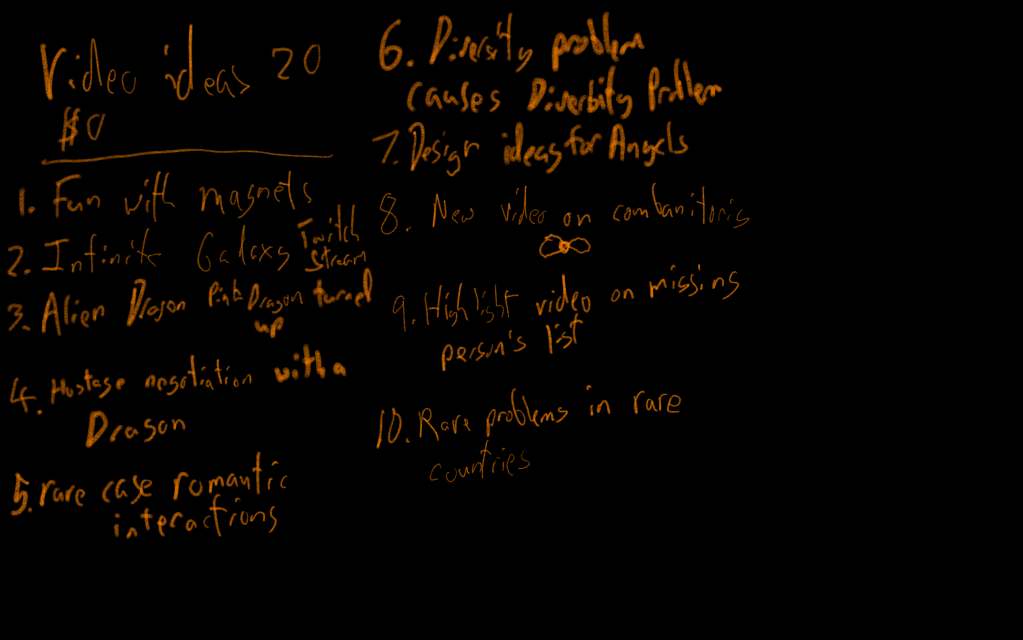 Video ideas 20
$0
1. Fun with magnets
2. Infinite Galaxy Twitch
Stream
3. Alien Dragon Pink Dragon turned
up
4. Hostage negotiation with a
Dragon
5. rare case romantic
interactions
6. Diversity problem
causes Diverbity Problem
7. Design ideas for Angels
8. New video on combanitoris
9. Highlight video on missing
person's list
10. Rare problems in rare
countries